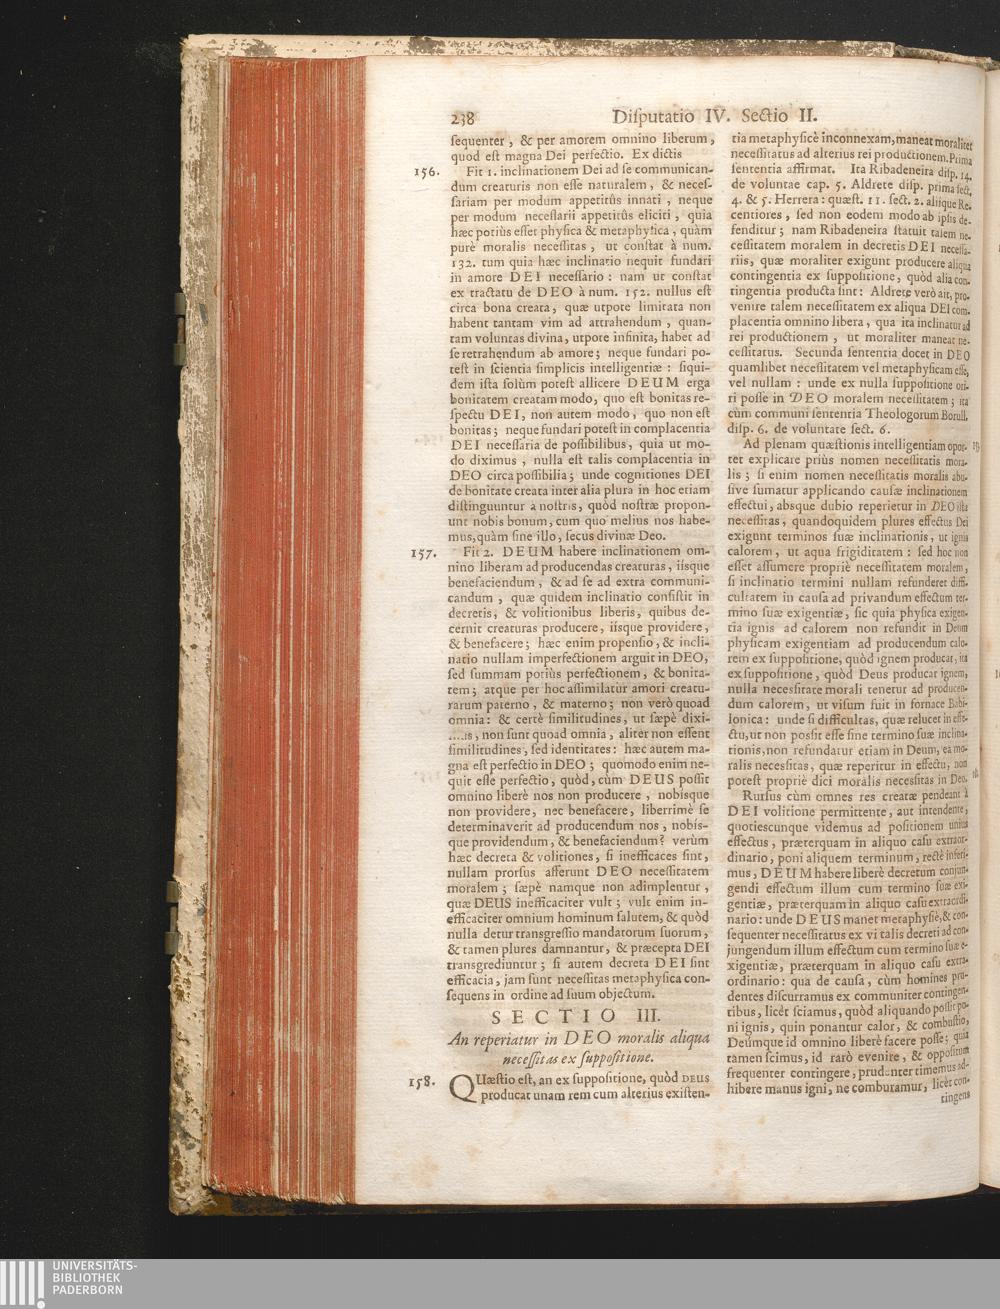 238
Diſputatio IV. Sectio II.
ſequenter, & per amorem omnino liberum,
quod eſt magna Dei perfectio. Ex dictis
156.
Fit 1. inclinationem Dei ad ſe communican-
dum creaturis non eſſe naturalem, & neceſ-
ſariam per modum appetitûs innati, neque
per modum neceſſarii appetitûs eliciti, quia
hæc potiùs eſſet phyſica & metaphyſica, quàm
purè moralis neceſſitas, ut conſtat à num.
132. tum quia hæc inclinatio nequit fundari
in amore DEI neceſſario: nam ut conſtat
ex tractatu de DEO à num. 152. nullus eſt
circa bona creata, quæ utpote limitata non
habent tantam vim ad attrahendum, quan-
tam voluntas divina, utpote infinita, habet ad
ſe retrahendum ab amore; neque fundari po-
teſt in ſcientia ſimplicis intelligentiæ: ſiqui-
dem iſta ſolùm poteſt allicere DEUM erga
bonitatem creatam modo, quo eſt bonitas re-
ſpectu DEI, non autem modo, quo non eſt
bonitas; neque fundari poteſt in complacentia
DEI neceſſaria de poſſibilibus, quia ut mo-
do diximus, nulla eſt talis complacentia in
DEO circa poſſibilia; unde cognitiones DEI
de bonitate creata inter alia plura in hoc etiam
diſtinguuntur a noſtris, quòd noſtræ propon-
unt nobis bonum, cum quo melius nos habe-
mus, quàm ſine illo, ſecus divinæ Deo.
157.
Fit 2. DEUM habere inclinationem om-
nino liberam ad producendas creaturas, iiſque
benefaciendum, & ad ſe ad extra communi-
candum, quæ quidem inclinatio conſiſtit in
decretis, & volitionibus liberis, quibus de-
cernit creaturas producere, iiſque providere,
& benefacere; hæc enim propenſio, & incli-
natio nullam imperfectionem arguit in DEO,
ſed ſummam potiùs perfectionem, & bonita-
tem; atque per hoc aſſimilatur amori creatu-
rarum paterno, & materno; non verò quoad
omnia: & certè ſimilitudines, ut ſæpè dixi-
, non ſunt quoad omnia, aliter non eſſent
ſimilitudines, ſed identitates: hæc autem ma-
gna eſt perfectio in DEO; quomodo enim ne-
quit eſſe perfectio, quòd, cùm DEUS poſſit
omnino liberè nos non producere, nobiſque
non providere, nec benefacere, liberrimè ſe
determinaverit ad producendum nos, nobiſ-
que providendum, & benefaciendum? verùm
hæc decreta & volitiones, ſi inefficaces ſint,
nullam prorſus afferunt DEO neceſſitatem
moralem; ſæpè namque non adimplentur,
quæ DEUS inefficaciter vult; vult enim in-
efficaciter omnium hominum ſalutem, & quòd
nulla detur transgreſſio mandatorum ſuorum,
& tamen plures damnantur, & præcepta DEI
transgrediuntur; ſi autem decreta DEI ſint
efficacia, jam ſunt neceſſitas metaphyſica con-
ſequens in ordine ad ſuum objectum.
SECTIO III.
An reperiatur in DEO moralis aliqua
neceſſitas ex ſuppoſitione.
158.
QUæſtio eſt, an ex ſuppoſitione, quòd DEUS
producat unam rem cum alterius exiſten-
tia metaphyſicè inconnexam, maneat moraliter
neceſſitatus ad alterius rei productionem. Prima
ſententia affirmat. Ita Ribadeneira diſp. 14.
de voluntae cap. 5. Aldrete diſp. prima ſect.
4. & 5. Herrera: quæſt. 11. ſect. 2. aliique Re-
centiores, ſed non eodem modo ab ipſis de-
fenditur; nam Ribadeneira ſtatuit talem ne-
ceſſitatem moralem in decretis DEI neceſſa-
riis, quæ moraliter exigunt producere aliqua
contingentia ex ſuppoſitione, quòd alia con-
tingentia producta ſint: Aldrete verò ait, pro-
venire talem neceſſitatem ex aliqua DEI com-
placentia omnino libera, qua ita inclinatur ad
rei productionem, ut moraliter maneat ne-
ceſſitatus. Secunda ſententia docet in DEO
quamlibet neceſſitatem vel metaphyſicam eſſe,
vel nullam: unde ex nulla ſuppoſitione ori-
ri poſſe in DEO moralem neceſſitatem; ita
cùm communi ſententia Theologorum Borull.
diſp. 6. de voluntate ſect. 6.
Ad plenam quæſtionis intelligentiam opor-
tet explicare priùs nomen neceſſitatis mora-
lis; ſi enim nomen neceſſitatis moralis abu-
ſive ſumatur applicando cauſæ inclinationem
effectui, absque dubio reperietur in DEO iſta
neceſſitas, quandoquidem plures effectus Dei
exigunt terminos ſuæ inclinationis, ut ignis
calorem, ut aqua frigiditatem: ſed hoc non
eſſet aſſumere propriè neceſſitatem moralem,
ſi inclinatio termini nullam refunderet diffi-
cultatem in cauſa ad privandum effectum ter-
mino ſuæ exigentiæ, ſic quia phyſica exigen-
tia ignis ad calorem non refundit in Deum
phyſicam exigentiam ad producendum calo-
rem ex ſuppoſitione, quòd ignem producat, ita
ex ſuppoſitione, quòd Deus producat ignem,
nulla neceſſitate morali tenetur ad producen-
dum calorem, ut viſum fuit in fornace Babi-
lonica: unde ſi difficultas, quæ relucet in effe-
ctu, ut non poſſit eſſe ſine termino ſuæ inclina-
tionis, non refundatur etiam in Deum, ea mo-
ralis neceſſitas, quæ reperitur in effectu, non
poteſt propriè dici moralis neceſſitas in Deo.
Rurſus cùm omnes res creatæ pendeant à
DEI volitione permittente, aut intendente,
quotieſcunque videmus ad poſitionem unius
effectus, præterquam in aliquo caſu extraor-
dinario, poni aliquem terminum, rectè inferi-
mus, DEUM habere liberè decretum conjun-
gendi effectum illum cum termino ſuæ exi-
gentiæ, præterquam in aliquo caſu extraordi-
nario: unde DEUS manet metaphyſiè, & con-
ſequenter neceſſitatus ex vi talis decreti ad con-
jungendum illum effectum cum termino ſuæ e-
xigentiæ, præterquam in aliquo caſu extra-
ordinario: qua de cauſa, cùm homines pru-
dentes diſcurramus ex communiter contingen-
tibus, licèt ſciamus, quòd aliquando poſſit po-
ni ignis, quin ponantur calor, & combuſtio,
Deumque id omnino liberè facere poſſe; quia
tamen ſcimus, id rarò evenire, & oppoſitum
frequenter contingere, prudenter timemus ad-
hibere manus igni, ne comburamur, licèt con-
tingens
UNIVERSITÄTS-
BIBLIOTHEK
PADERBORN